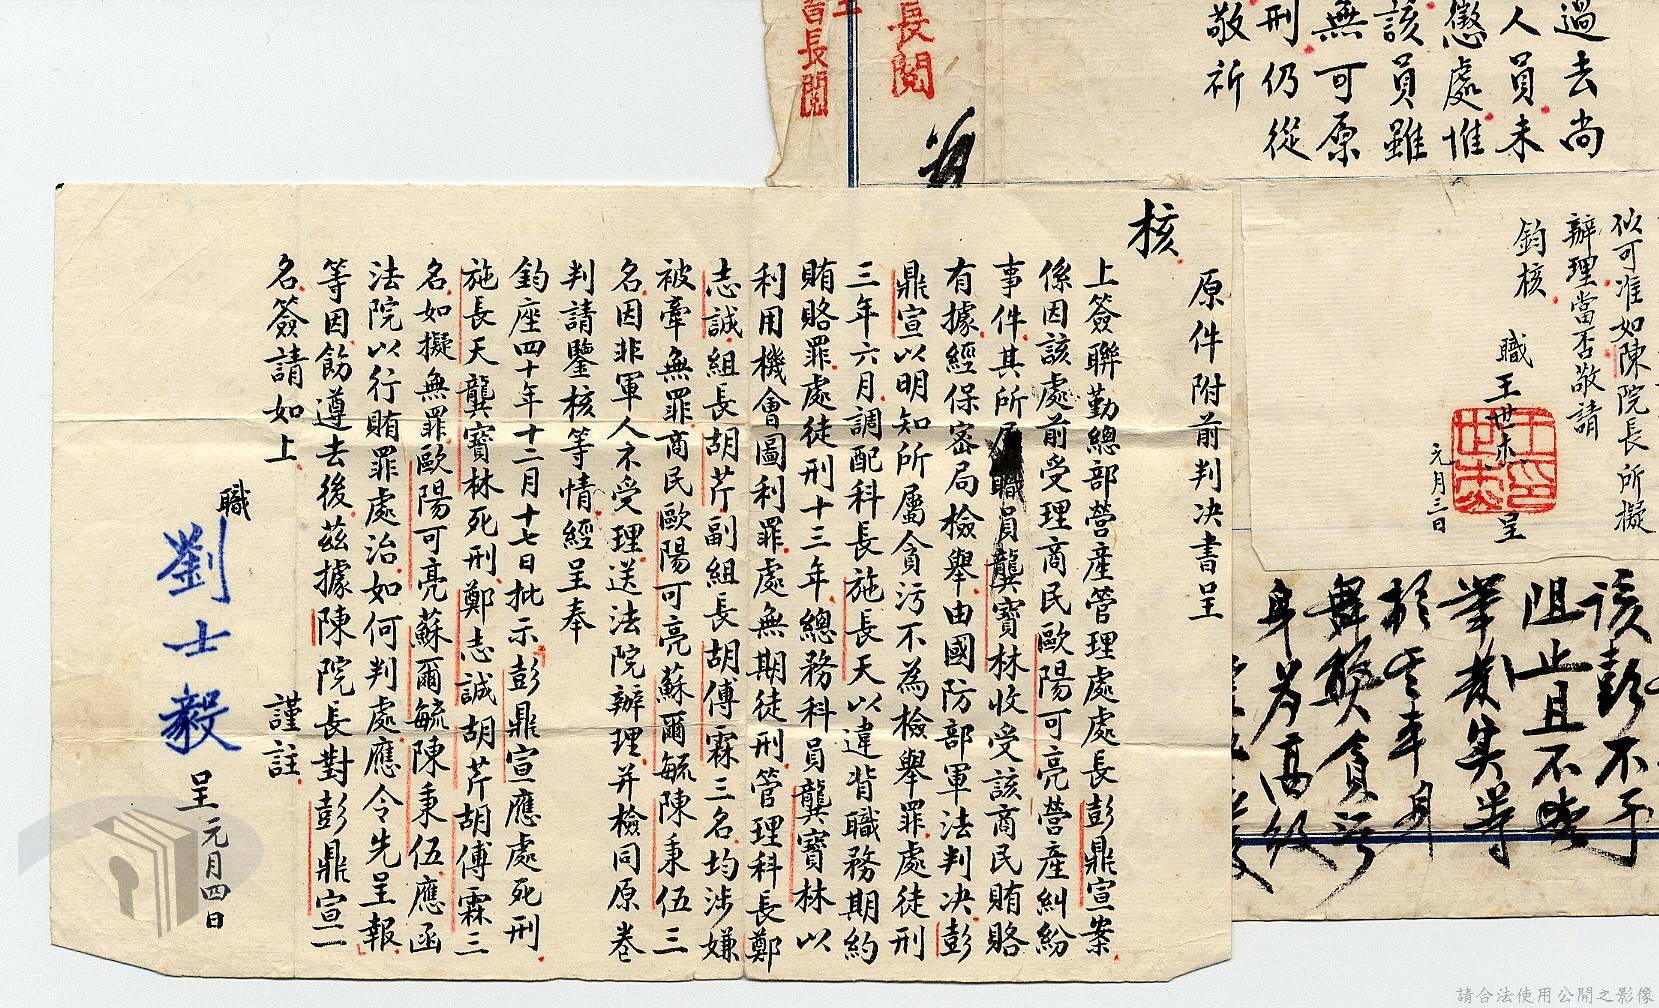 過去尚
人員未
懲處惟
該員雖
無可原
刑仍從
敬祈
長閱
長閱
似可准如陳院長所擬
辦理當否敬請
鈞核
職王世杰呈
元月三日
該彭不予
阻止且不
舞弊貪污
身為高級
核
原件附前判決書呈
上簽聯勤總部營產管理處處長彭鼎宣案
係因該處前受理商民歐陽可亮營產糾紛
事件其所屬職員龔寶林收受該商民賄賂
有據經保密局檢舉由國防部軍法判決彭
鼎宣以明知所屬貪污不為檢舉罪處徒刑
三年六月調配科長施長天以違背職務期約
賄賂罪處徒刑十三年總務科員龔寶林以
利用機會圖利罪處無期徒刑管理科長鄭
志誠組長胡芹副組長胡傅霖三名均涉嫌
被牽無罪商民歐陽可亮蘇爾毓陳秉伍三
名因非軍人不受理送法院辦理并檢同原卷
判請鑒核等情經呈奉
鈞座四十年十二月十七日批示彭鼎宣應處死刑
施長天龔寶林死刑鄭志誠胡芹胡傅霖三
名如擬無罪歐陽可亮蘇爾毓陳秉伍應函
法院以行賄罪處治如何判處應令先呈報
等因飭遵去後茲據陳院長對彭鼎宣一
名簽請如上
謹註
職劉士毅呈元月四日
請合法使用公開之影像